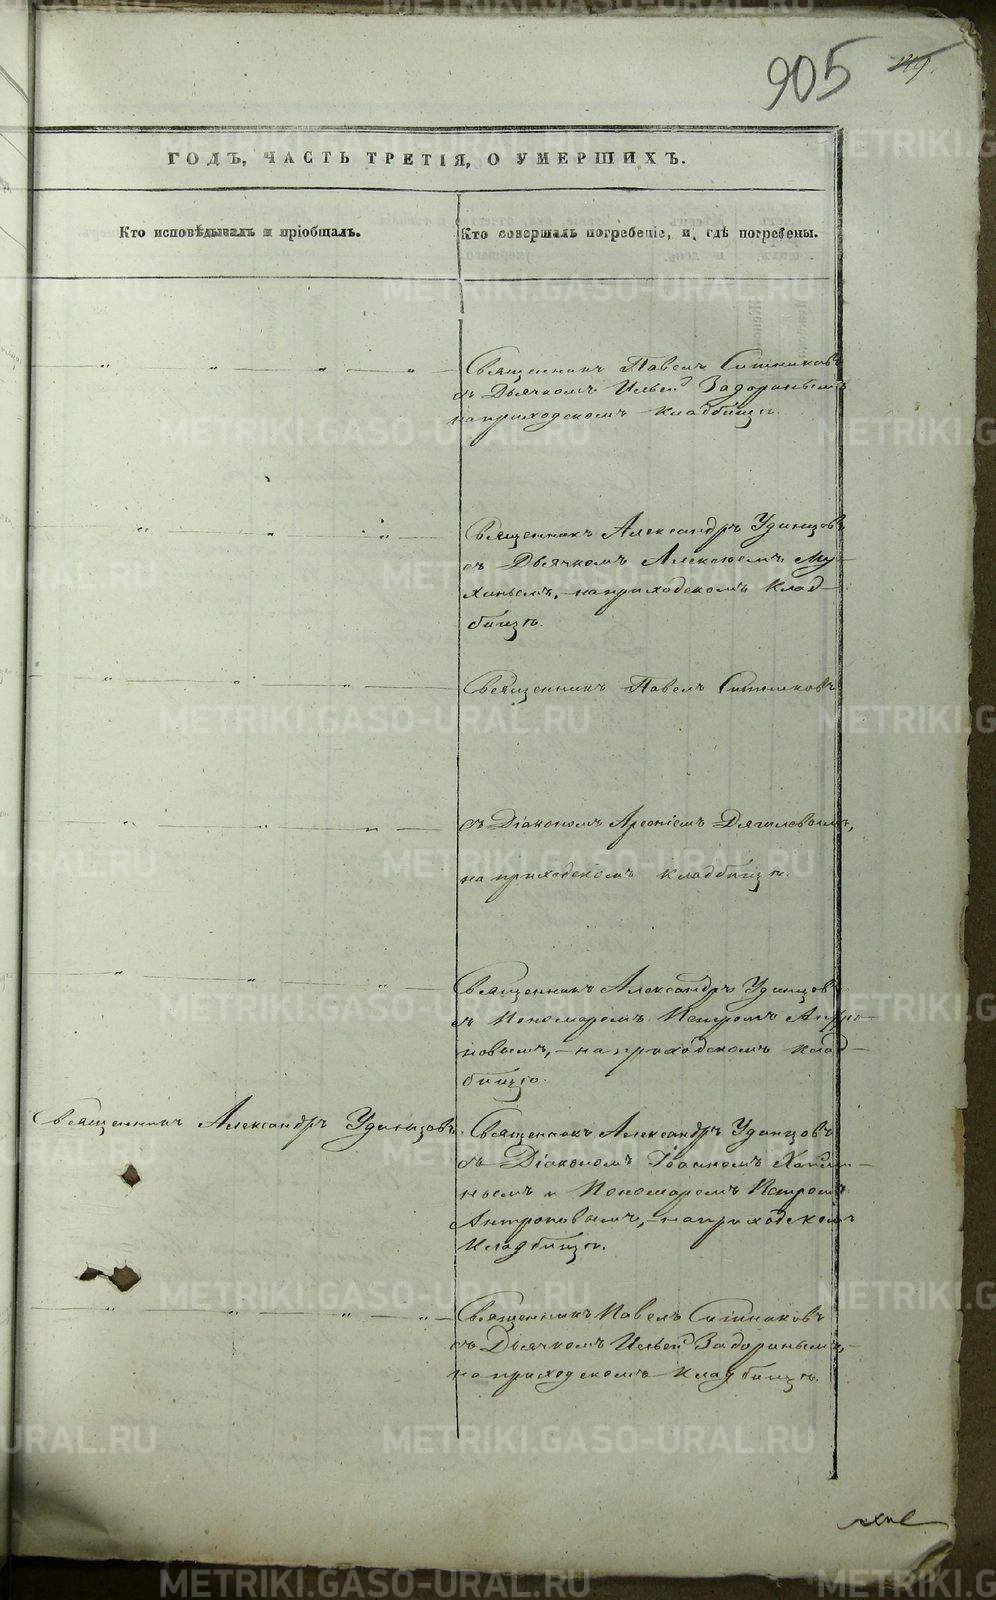 905
ГОДЪ, ЧАСТЬ ТРЕТІЯ, О УМЕРШИХЪ.
Кто исповѣдывалъ и пріобщалъ.
Кто совершалъ погребеніе, и гдѣ погребены.
Священникъ Павелъ Ситниковъ
съ Дьячкомъ Ильей Задоринымъ
на приходскомъ кладбищѣ.
Священникъ Александръ Удинцовъ
съ Дьячкомъ Алексѣемъ Му-
хинымъ, - на приходскомъ Клад-
бищѣ.
Священникъ Павелъ Ситниковъ
съ Діакономъ Арсеніемъ Дягилевымъ,
на приходскомъ кладбищѣ.
Священникъ Александръ Удинцовъ
съ Пономаремъ Петромъ Антро-
повымъ, - на приходскомъ клад-
бищѣ.
Священникъ Александръ Удинцовъ.
Священникъ Александръ Удинцовъ
съ Діакономъ Іоанномъ
и Пономаремъ Петромъ
Антроповымъ, - на приходскомъ
Кладбищѣ.
Священникъ Павелъ Ситниковъ
съ Дьячкомъ Ильей Задоринымъ,-
на приходскомъ кладбищѣ.
METRIKI.GASO-URAL.RU